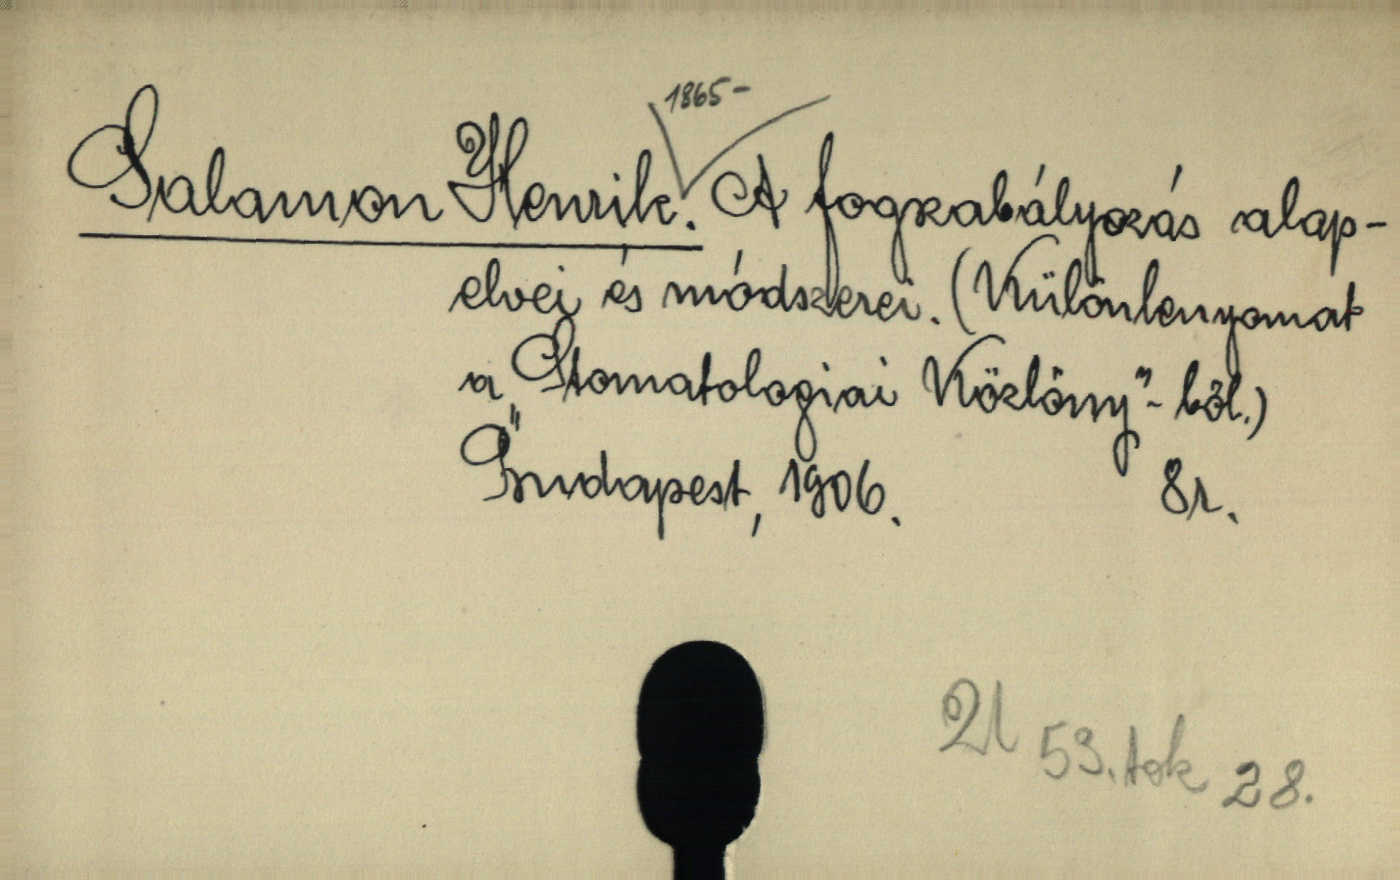 1865-
Salamon Henrik. A fogszabályozás alap-
elvei és módszerei. (Különlenyomat
a „Stomatologiai Közlöny"-ből.)
Budapest, 1906. 8r.
21 53. tok 28.